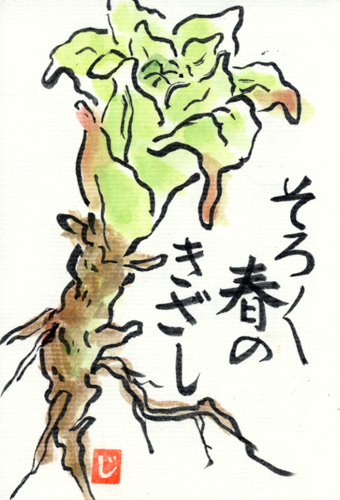 そろ〳〵
春の
きざし
じ